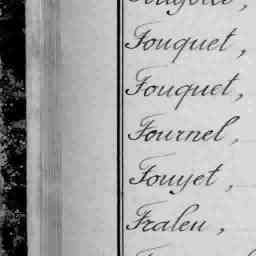 Fouquet,
Fouquet,
Fournel,
Fouyet,
Fraleu,